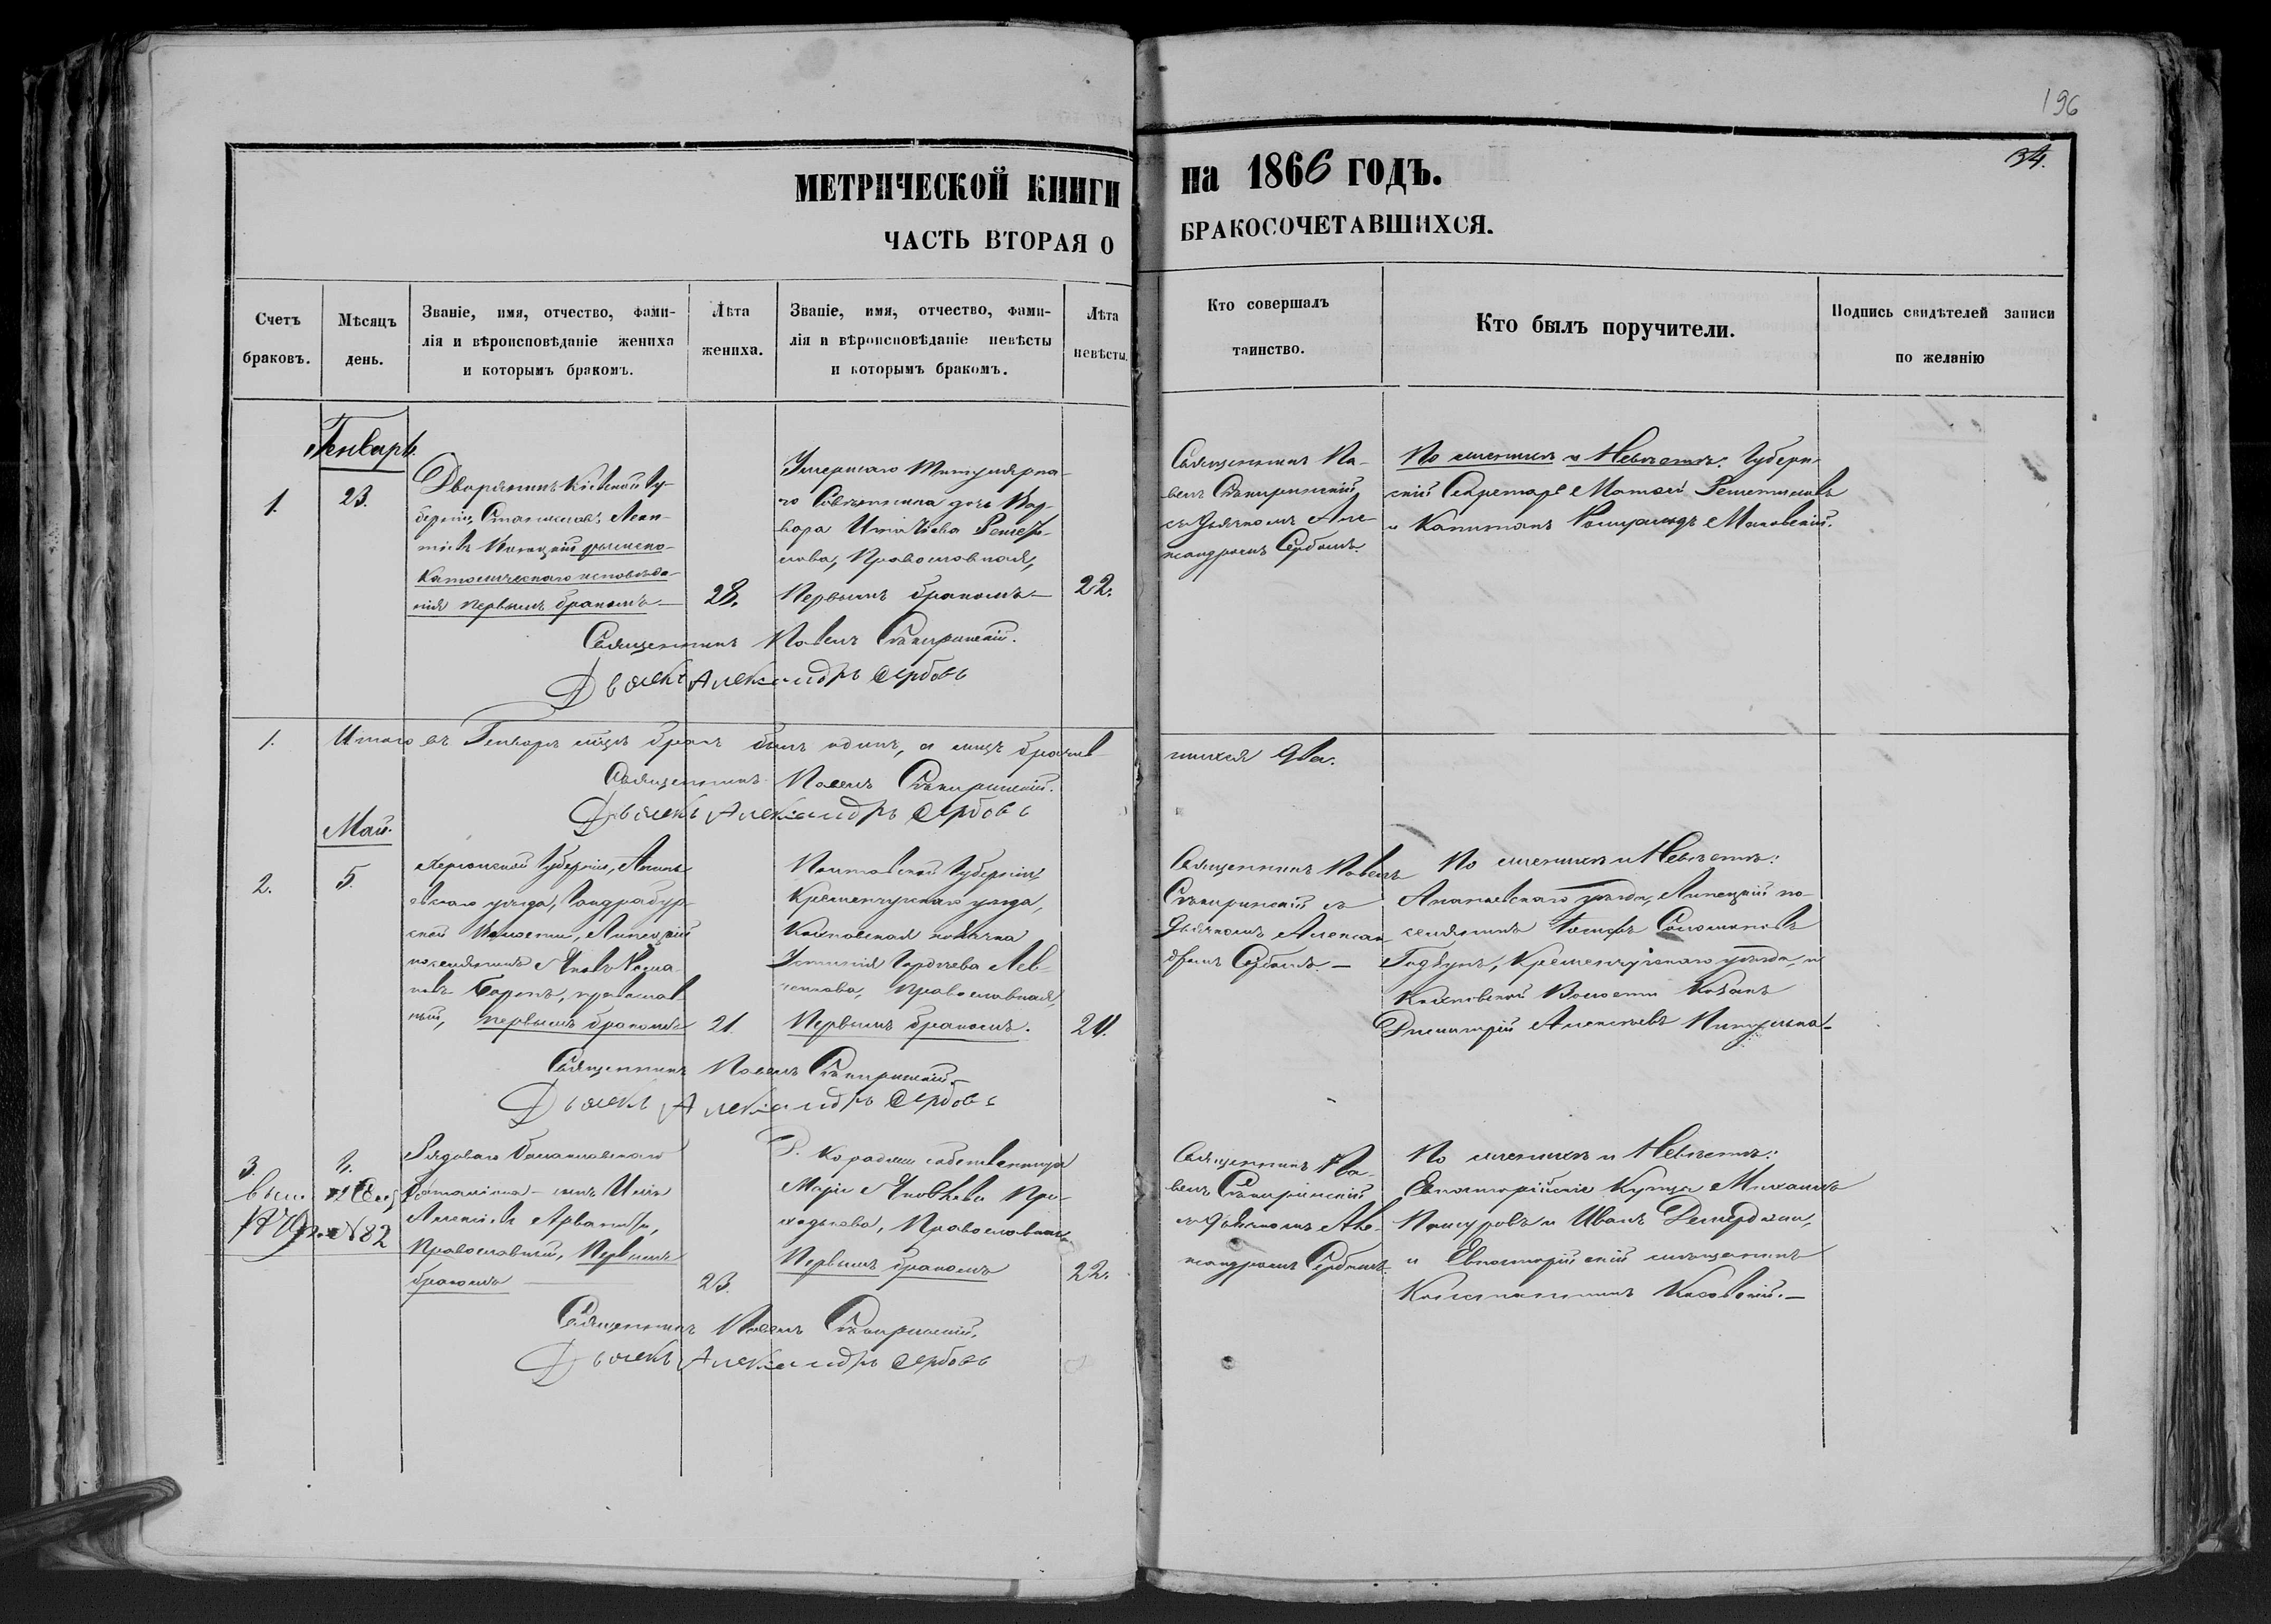 196
34.
МЕТРИЧЕСКОЙ КНИГИ на 1866 ГОДЪ.
ЧАСТЬ ВТОРАЯ О БРАКОСОЧЕТАВШИХСЯ.
Счетъ браковъ.
Мѣсяцъ день.
Званіе, имя, отчество, фами-
лія и вѣроисповѣданіе жениха
и которымъ бракомъ.
Лѣта
жениха.
Званіе, имя, отчество, фами-
лія и вѣроисповѣданіе невѣсты
и которымъ бракомъ.
Лѣта
невѣсты.
Кто совершалъ
таинство.
Кто былъ поручители.
Подпись свидѣтелей записи
по желанію
Генварь.
1.
23.
Дворянинъ Кіевской Гу-
берніи, Станиславъ Леон-
римско-
Католическаго исповѣда-
нія первымъ бракомъ
28.
Умершаго Титулярна-
го Совѣтника дочь Вар-
вара
Православная,
Первымъ бракомъ
22.
Священникъ Па-
велъ
съ Дьячкомъ Але-
ксандромъ Сербовымъ.
По женихѣ и Невѣстѣ: Губерн-
скій Секретарь Матвѣй
и Капитанъ Маковскій.
Священникъ Павелъ
Дьячекъ Александръ Сербовъ
1.
Итого въ Генварѣ мѣсяцѣ бракъ былъ одинъ, а лицъ брачив-
шихся два.
Священникъ Павелъ
Дьячекъ Александръ Сербовъ
Май.
2.
5.
Херсонской Губерніи, Анань-
евскаго уѣзда, Гандрабур-
ской Волости, Липецкій
поселянинъ Яковъ Рома-
новъ православ-
ный, первымъ бракомъ
21.
Полтавской Губерніи,
Кременчугскаго уѣзда,
козачка
Устинія
Православная,
Первымъ бракомъ.
Священникъ Павелъ
съ
Дьячкомъ Алексан-
дромъ Сербовымъ.
По женихѣ и Невѣстѣ:
Ананьевскаго уѣзда, Липецкій по-
селянинъ Іосифъ Соломоновъ
Кременчугскаго уѣзда,
Волости Козакъ
Димитрій Алексѣевъ
Священникъ Павелъ
Дьячекъ Александръ Сербовъ
3.
№82
Рядоваго Балаклавскаго
Баталіона сынъ Илія
Алексѣевъ
Православный, Первымъ
бракомъ
23.
собственница
Марія Яковлева Про-
Православная
Первымъ бракомъ
22.
Священникъ Па-
велъ
съ Дьячкомъ Але-
ксандромъ Сербовымъ.
По женихѣ и Невѣстѣ:
Евпаторійскіе Купцы Михаилъ
и Иванъ
и Евпаторійскій мѣщанинъ
Константинъ
Священникъ Павелъ
Дьячекъ Александръ Сербовъ